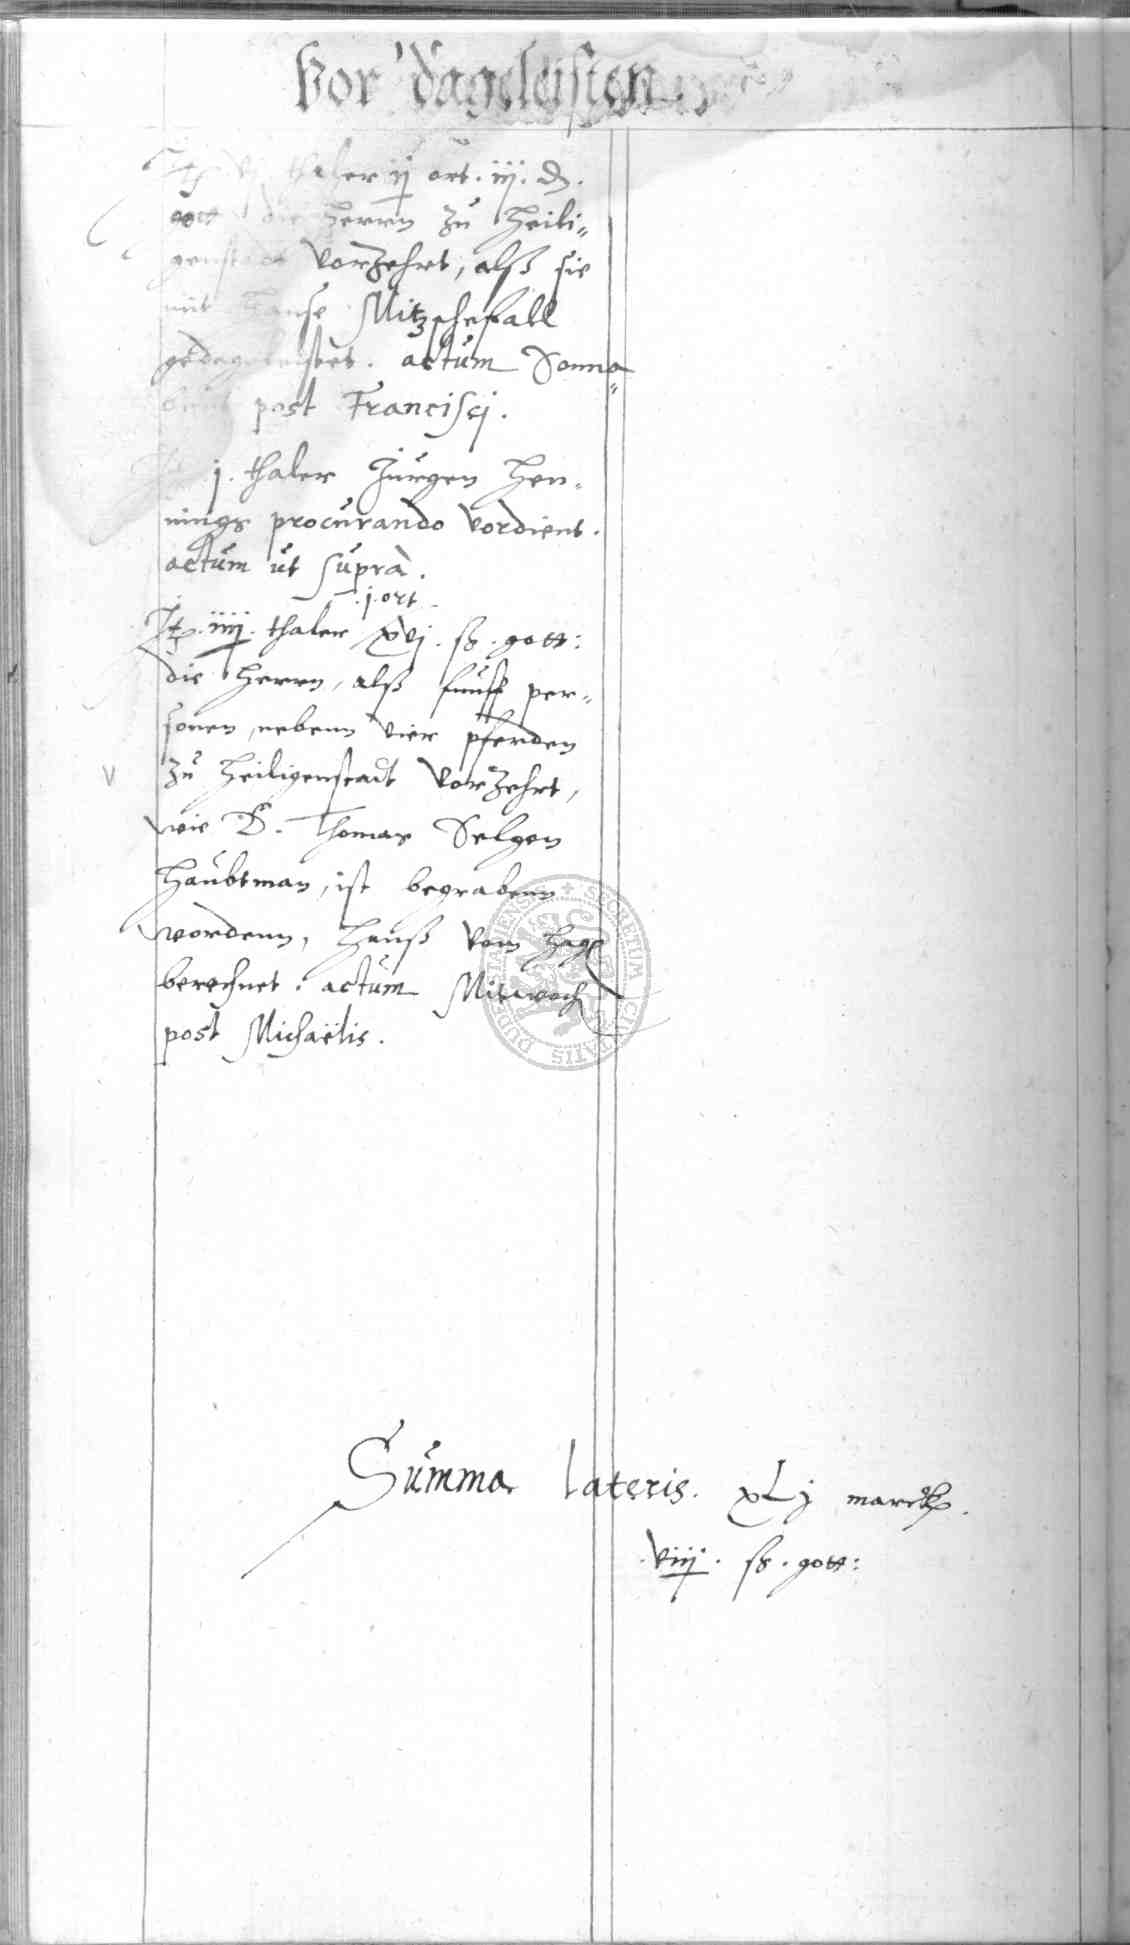 Vor dageleisten.
thaler ij ort. iij. d.
gott die Herrn zu Heili„
genstadt Vorzehrt, alß sie
mit Hanse Mitzschefall
gedageleistet. actum Sonna„
bent post Francisci.
j. thaler Jurgen Hen„
nings procurando vordient.
actum ut supra.
.j. ort
It. iiij. thaler xvj. ß. gott:
die Herrn, alß funff per„
sonen, nebenn vier pferden
V
zu Heiligenstadt Vorzehrt,
wie D. Thomas Selgen
Haubtman, ist begrabenn
wordenn, Hanß Vom Hage
berechnet. actum Mitwoch
post Michaëlis.
SECRETUM CIVITATIS DUDERSTADIENSIS
Summa lateris. xLj marck.
.viij. ß. gott: